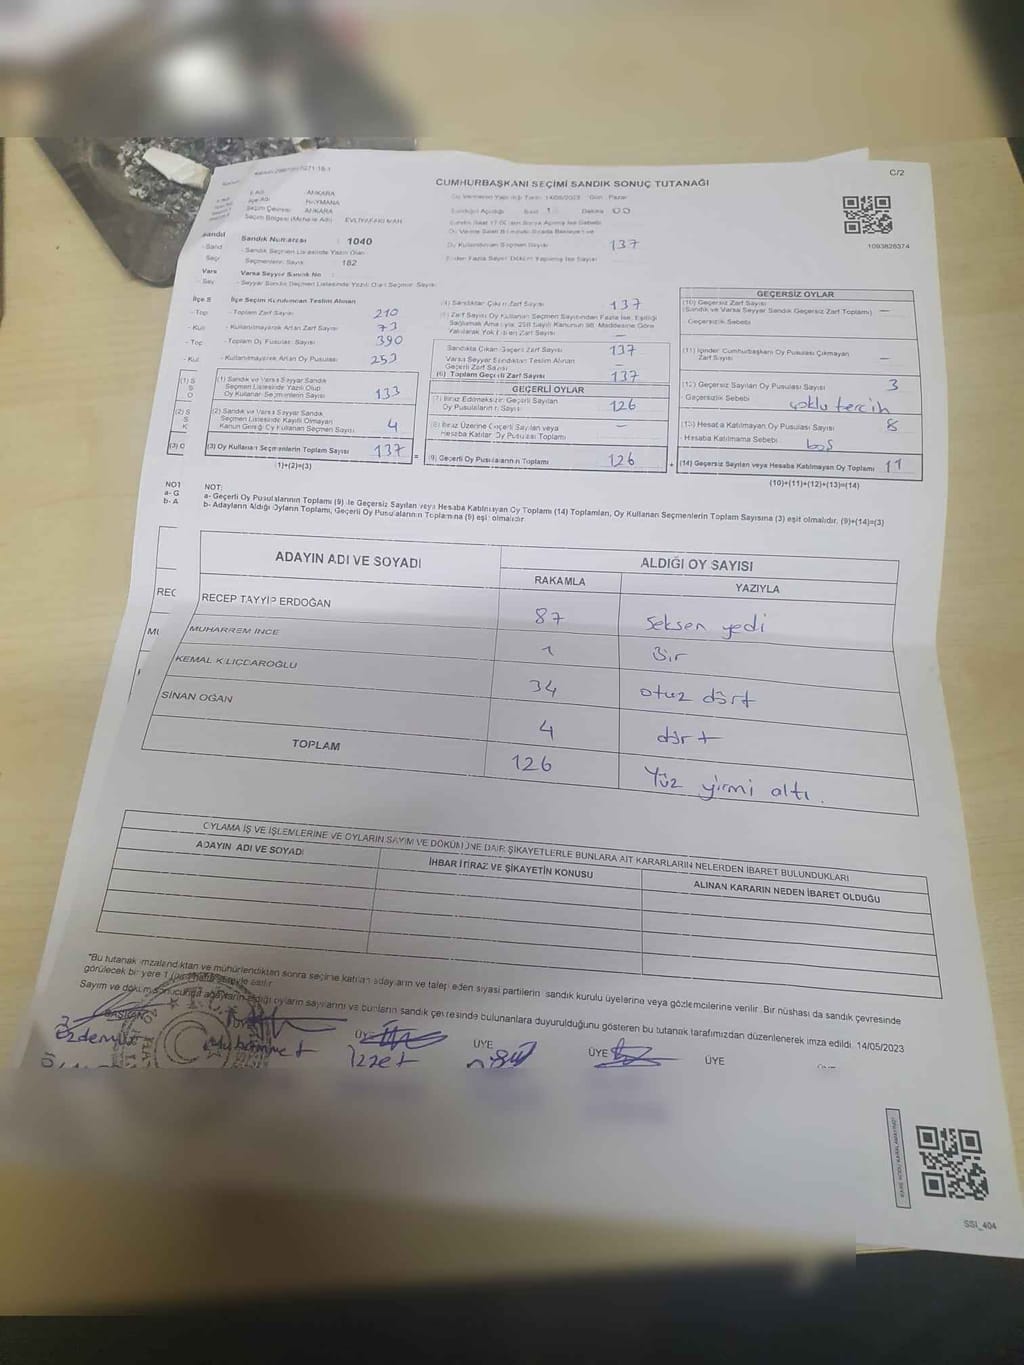 C/2
CUMHURBAŞKANI SEÇİMİ SANDIK SONUÇ TUTANAĞI
ANKARA
HAYMANA
Seçim Çevresi ANKARA
Seçim Bölgesi
Sandık Numarası 1040
1093826374
Sandık Seçmen Listesinde Yazılı Olan
Seçmenlerin Sayısı 182
Oy Kullanan Seçmen Sayısı 137
Varsa Seyyar Sandık No
Seyyar Sandık Seçmen Listesinde Yazılı Olan Seçmen Sayısı
İlçe Seçim Kurulundan Teslim Alınan
- Toplam Zarf Sayısı 210
- Kullanılmayarak Artan Zarf Sayısı 73
- Toplam Oy Pusulası Sayısı 390
- Kullanılmayarak Artan Oy Pusulası 253
(1) Sandık ve Varsa Seyyar Sandık
Seçmen Listesinde Yazılı Olup
Oy Kullanan Seçmenlerin Sayısı 133
(2) Sandık ve Varsa Seyyar Sandık
Seçmen Listesinde Kayıtlı Olmayan
Kanun Gereği Oy Kullanan Seçmen Sayısı 4
(3) Oy Kullanan Seçmenlerin Toplam Sayısı 137
(1)+(2)=(3)
(4) Sandıktan Çıkan Zarf Sayısı 137
Sandıkta Çıkan Geçerli Zarf Sayısı 137
Varsa Seyyar Sandıktan Teslim Alınan
Geçerli Zarf Sayısı
(6) Toplam Geçerli Zarf Sayısı 137
GEÇERLİ OYLAR
(7) İtiraz Edilmeksizin Geçerli Sayılan
Oy Pusulalarının Sayısı 126
(8) İtiraz Üzerine Geçerli Sayılan veya
Hesaba Katılan Oy Pusulası Toplamı –
(9) Geçerli Oy Pusulalarının Toplamı 126
GEÇERSİZ OYLAR
(10) Geçersiz Zarf Sayısı
(Sandık ve Varsa Seyyar Sandık Geçersiz Zarf Toplamı) –
Geçersizlik Sebebi
(11) İçinden Cumhurbaşkanı Oy Pusulası Çıkmayan
Zarf Sayısı –
(12) Geçersiz Sayılan Oy Pusulası Sayısı 3
Geçersizlik Sebebi çoklu tercih
(13) Hesaba Katılmayan Oy Pusulası Sayısı 8
Hesaba Katılmama Sebebi boş
(14) Geçersiz Sayılan veya Hesaba Katılmayan Oy Toplamı 11
(10)+(11)+(12)+(13)=(14)
NOT:
a- Geçerli Oy Pusulalarının Toplamı (9) ile Geçersiz Sayılan veya Hesaba Katılmayan Oy Toplamı (14) Toplamları, Oy Kullanan Seçmenlerin Toplam Sayısına (3) eşit olmalıdır. (9)+(14)=(3)
b- Adayların Aldığı Oyların Toplamı, Geçerli Oy Pusulalarının Toplamına (9) eşit olmalıdır.
ADAYIN ADI VE SOYADI
ALDIĞI OY SAYISI
RAKAMLA YAZIYLA
RECEP TAYYİP ERDOĞAN 87 Seksen yedi
MUHARREM İNCE 1 Bir
KEMAL KILIÇDAROĞLU 34 otuz dört
SİNAN OĞAN 4 dört
TOPLAM 126 Yüz yirmi altı.
OYLAMA İŞ VE İŞLEMLERİNE VE OYLARIN SAYIM VE DÖKÜMÜNE DAİR ŞİKAYETLERLE BUNLARA AİT KARARLARIN NELERDEN İBARET BULUNDUKLARI
ADAYIN ADI VE SOYADI
İHBAR İTİRAZ VE ŞİKAYETİN KONUSU
ALINAN KARARIN NEDEN İBARET OLDUĞU
*Bu tutanak imzalandıktan ve mühürlendikten sonra seçime katılan adayların ve talep eden siyasi partilerin sandık kurulu üyelerine veya gözlemcilerine verilir. Bir nüshası da sandık çevresinde
görülecek bir yere 1 hafta süreyle asılır.
Sayım ve döküm sonucunda adayların aldığı oyların sayılarını ve bunların sandık çevresinde bulunanlara duyurulduğunu gösteren bu tutanak tarafımızdan düzenlenerek imza edildi. 14/05/2023
BAŞKAN
ÜYE
ÜYE
ÜYE
ÜYE
Muhammet
İzzet
SSI_404